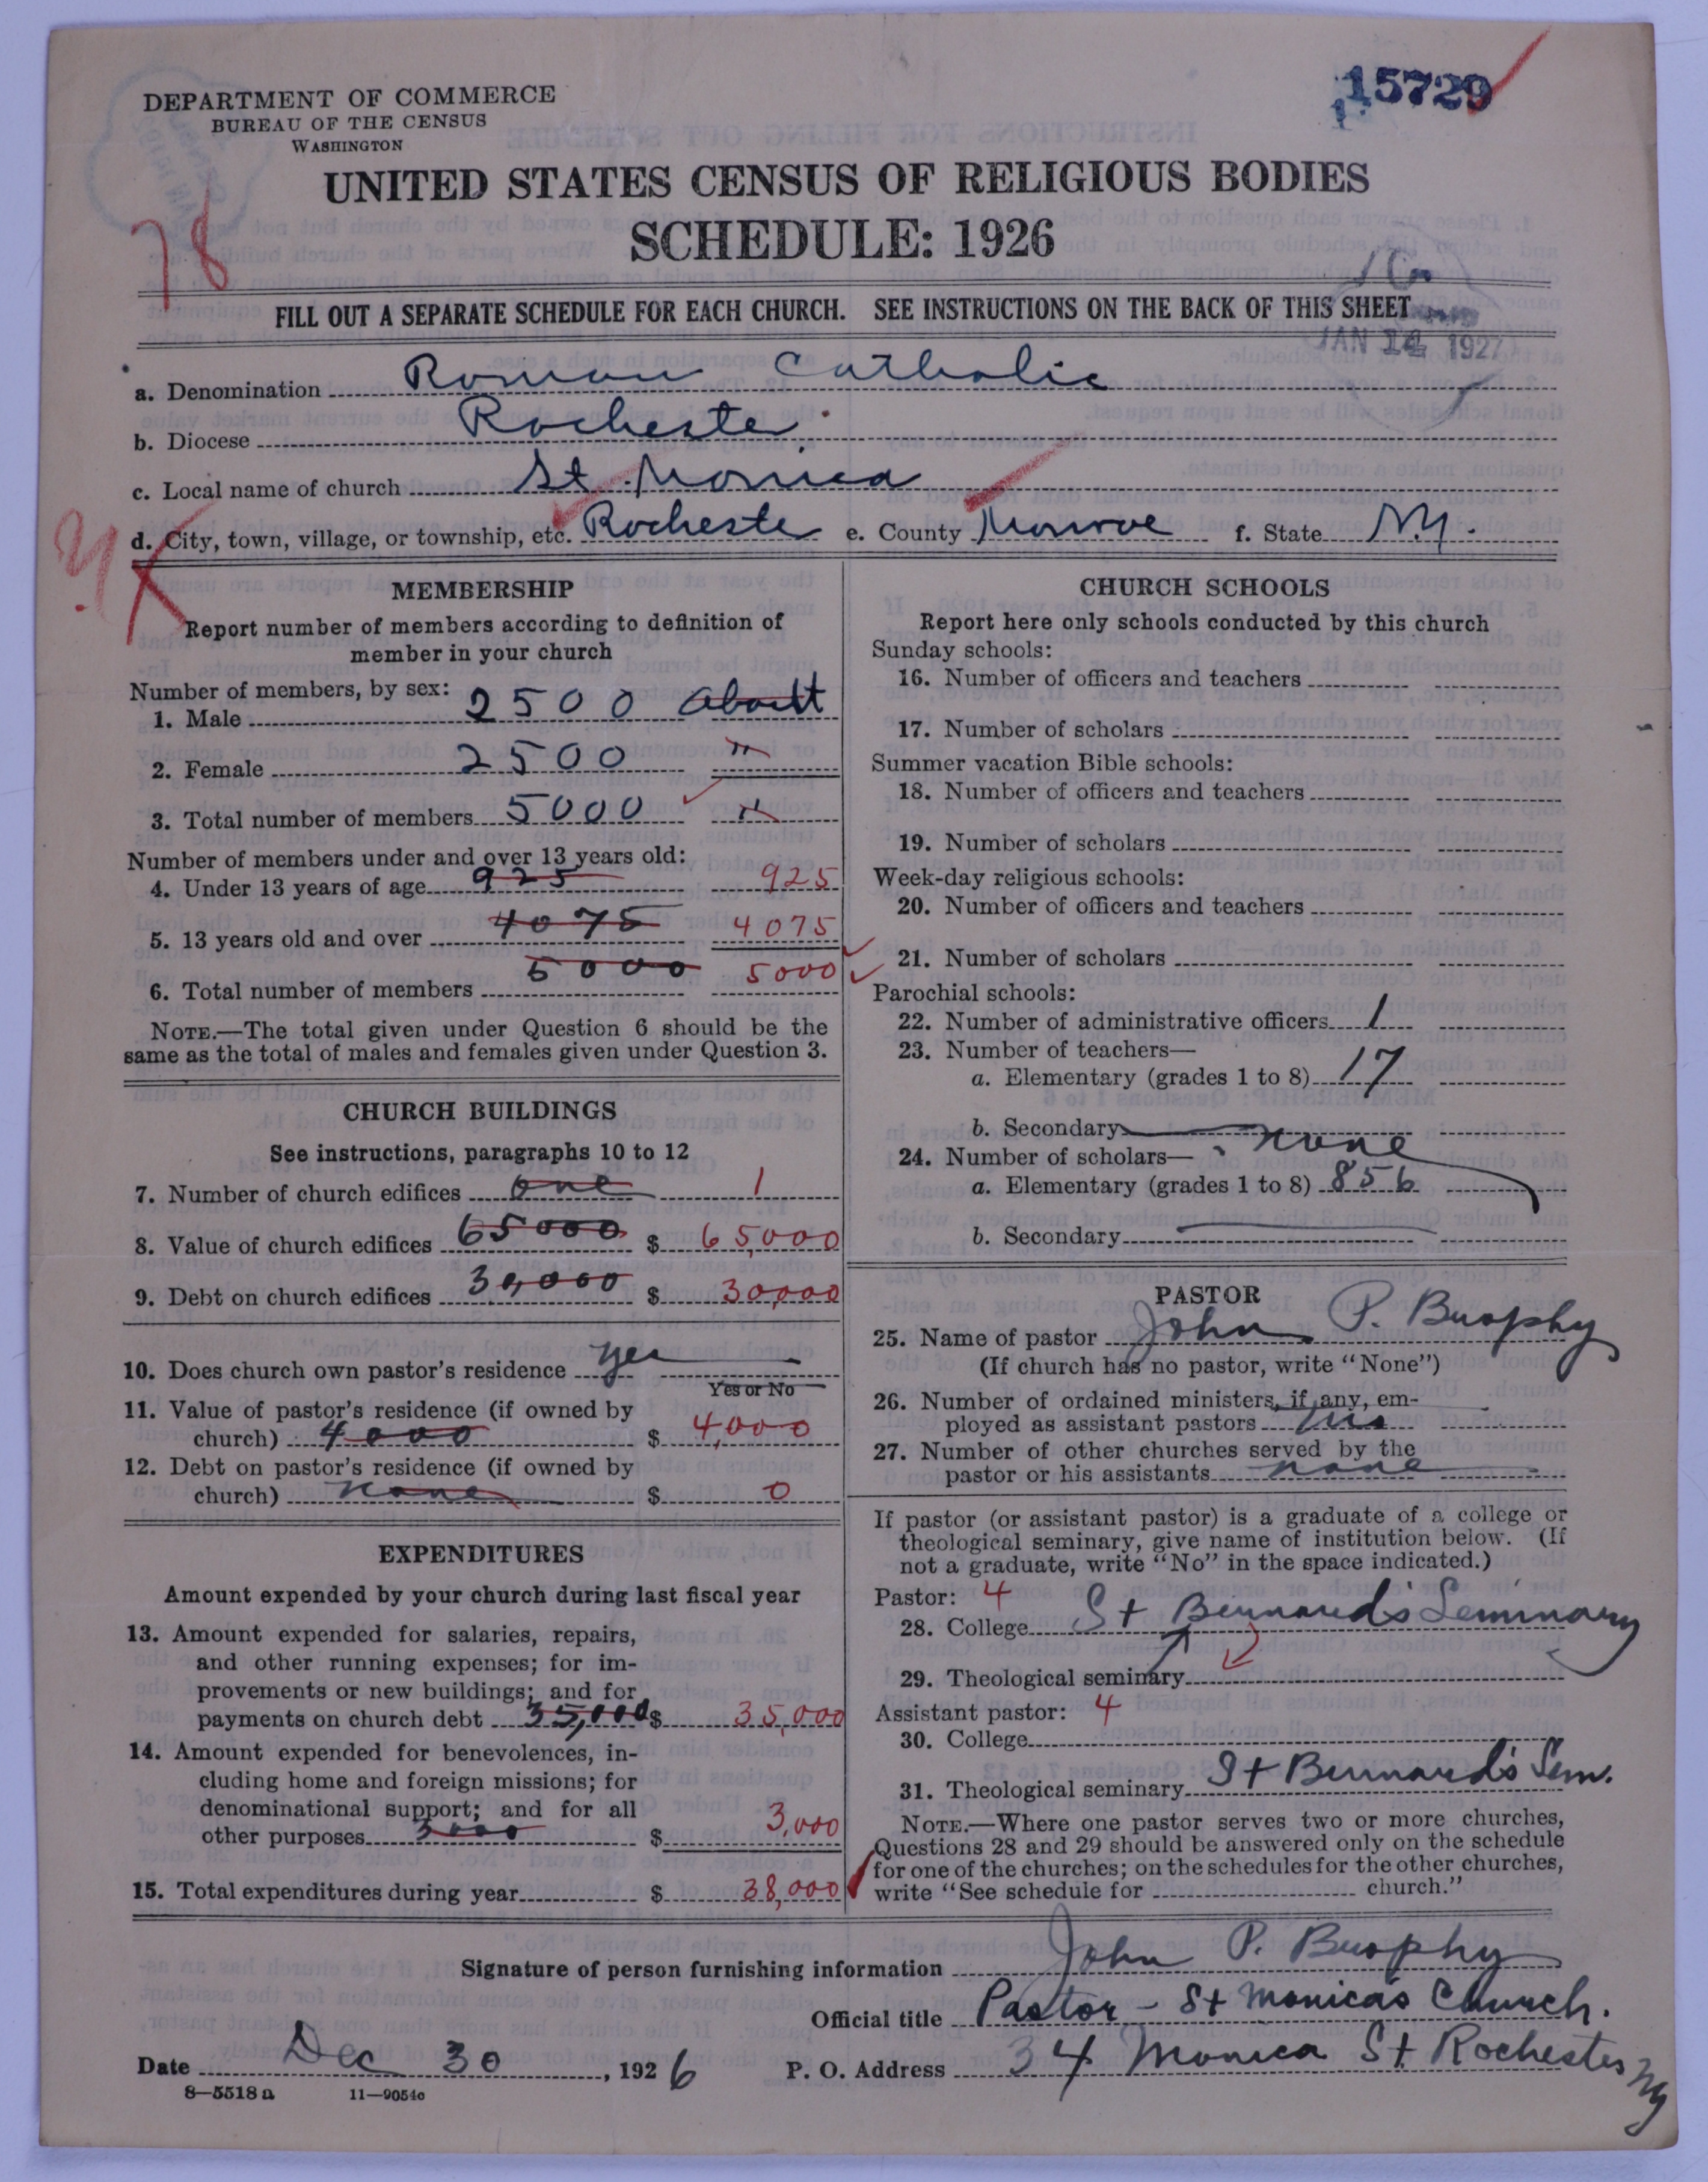 DEPARTMENT OF COMMERCE
BUREAU OF THE CENSUS
WASHINGTON
15729
UNITED STATES CENSUS OF RELIGIOUS BODIES
SCHEDULE: 1926
78
FILL OUT A SEPARATE SCHEDULE FOR EACH CHURCH. SEE INSTRUCTIONS ON THE BACK OF THIS SHEET
JAN 14 1927
a. Denomination Roman Catholic
b. Diocese Rochester
c. Local name of church St Monica
d. City, town, village, or township, etc. Rochester e. County Monroe f. State N.Y.
MEMBERSHIP
Report number of members according to definition of
member in your church
Number of members, by sex:
1. Male 2500 about
2. Female 2500 "
3. Total number of members 5000 "
Number of members under and over 13 years old:
4. Under 13 years of age 925 925
5. 13 years old and over 4075 4075
6. Total number of members 5000 5000
NOTE.—The total given under Question 6 should be the
same as the total of males and females given under Question 3.
CHURCH BUILDINGS
See instructions, paragraphs 10 to 12
7. Number of church edifices one 1
8. Value of church edifices 65000 $ 65,000
9. Debt on church edifices 30,000 $ 30,000
10. Does church own pastor's residence yes
Yes or No
11. Value of pastor's residence (if owned by
church) 4000 $ 4,000
12. Debt on pastor's residence (if owned by
church) none $ 0
EXPENDITURES
Amount expended by your church during last fiscal year
13. Amount expended for salaries, repairs,
and other running expenses; for im-
provements or new buildings; and for
payments on church debt 35,000 $ 35,000
14. Amount expended for benevolences, in-
cluding home and foreign missions; for
denominational support; and for all
other purposes 3000 $ 3,000
15. Total expenditures during year $ 38,000
CHURCH SCHOOLS
Report here only schools conducted by this church
Sunday schools:
16. Number of officers and teachers
17. Number of scholars
Summer vacation Bible schools:
18. Number of officers and teachers
19. Number of scholars
Week-day religious schools:
20. Number of officers and teachers
21. Number of scholars
Parochial schools:
22. Number of administrative officers 1
23. Number of teachers—
a. Elementary (grades 1 to 8) 17
b. Secondary none
24. Number of scholars—
a. Elementary (grades 1 to 8) 856
b. Secondary
PASTOR
25. Name of pastor John P. Brophy
(If church has no pastor, write "None")
26. Number of ordained ministers, if any, em-
ployed as assistant pastors
27. Number of other churches served by the
pastor or his assistants none
If pastor (or assistant pastor) is a graduate of a college or
theological seminary, give name of institution below. (If
not a graduate, write "No" in the space indicated.)
Pastor: 4
28. College St Bernard's Seminary
29. Theological seminary
Assistant pastor: 4
30. College
31. Theological seminary St Bernard's Sem.
NOTE.—Where one pastor serves two or more churches,
Questions 28 and 29 should be answered only on the schedule
for one of the churches; on the schedules for the other churches,
write "See schedule for church."
Signature of person furnishing information John P. Brophy
Official title Pastor - St Monicas Church.
Date Dec 30, 1926 P. O. Address 34 Monica St Rochester NY
8—5518 a 11—9054c